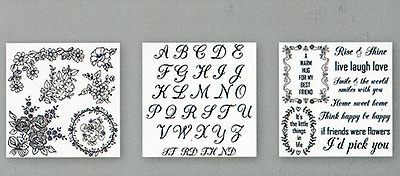 A B C D E
F G H I J
K L M N O
P Q R S T U
V W X Y Z
ST RD TH ND
A
WARM
HUG
FOR MY
BEST
FRIEND
It's the
little
things
in
life
Rise & Shine
live laugh love
Smile & the world
smiles with you
Home sweet home
Think happy be happy
if friends were flowers
I'd pick you